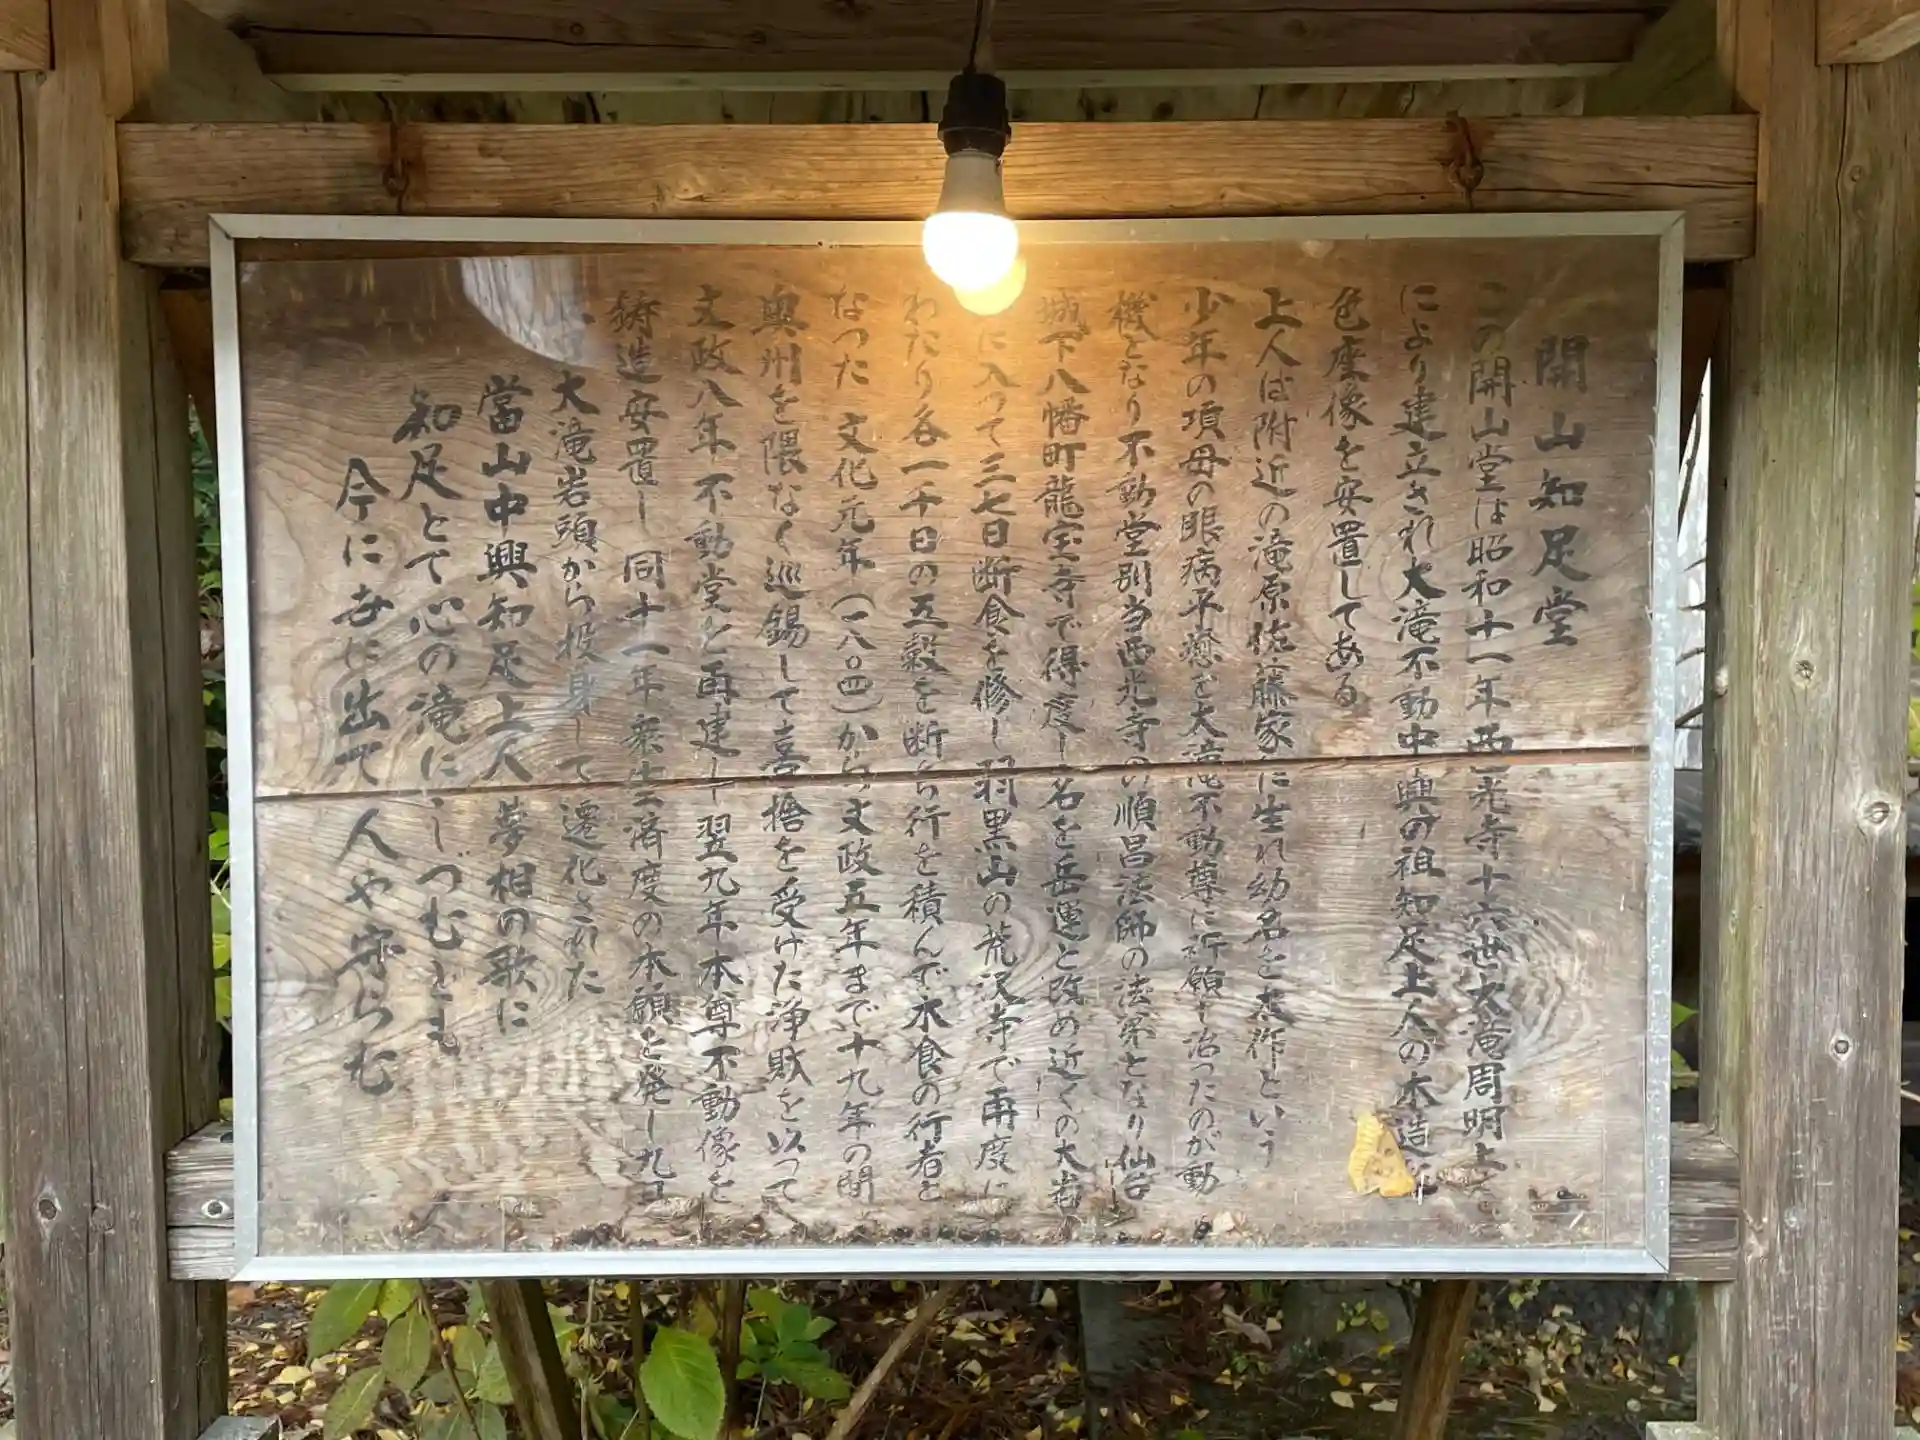 開山知足堂
この開山堂は昭和十一年西光寺十六世大滝周明上
により建立され大滝不動中興の祖知足上人の木造
色座像を安置してある
上人は附近の滝原佐藤家に生れ幼名を太作という
少年の項母の眼病平癒を大滝不動尊に祈願し治ったのが動
機となり不動堂別当西光寺の順昌法師の法弟となり仙台
城下八幡町龍宝寺で得度し名を岳運と改め近くの大岩
に入って三七日断食を修し羽黒山の荒沢寺で再度に
わたり各一千日の五穀を断ち行を積んで木食の行者と
なった 文化元年(一八〇四)から文政五年まで十九年の間
奥州を隈なく巡錫して喜捨を受けた浄財を以って
文政八年不動堂を再建し翌九年本尊不動像を
鋳造安置し同十一年衆生済度の本願を発し九
大滝岩頭から投身して遷化された
當山中興知足上人 夢相の歌に
知足とて心の滝にしづむとも
今に世に出て人や守らむ